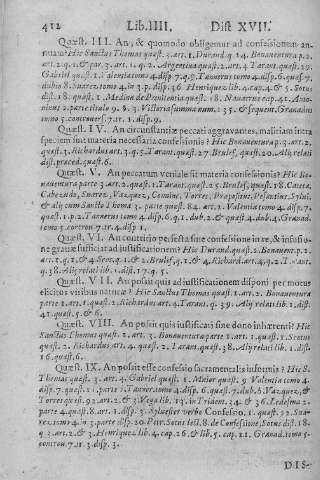 412 Lib. IIII. Dist. XVII.
Quæst. III. An, & quomodo obligemur ad confessionem an-
nuam? Hic Sanctus Thomas quæst. 3. art. 1. Durand. q. 14. Bonauentura p. 2.
art. 2. q. 2. & par. 3. art. 1. q. 2. Argentina quæst. 2. art. 4. Tarant. quæst. 29.
Gabriel quæst. 1. Valentia tomo 4. disp. 7. q. 9. Tannerus tomo 4. disp. 6. quæst. 7.
dubio 8. Suarez tomo 4. in 3. p. disp. 36. Henriquez lib. 4. cap. 4. & 5. Sotus
dist. 18. quæst. 1. Medina de Pœnitentia quæst. 18. Nauarrus
2. parte
tomo 5. controuers. 7. tr. 3. disp. 9.
Quæst. IV. An circumstantiæ peccati aggrauantes, malitiam intra
speciem sint materia necessaria confessionis? Hic Bonauentura p. 3. art. 2.
quæst. 3. Richardus art. 3. q. 5. Tarant. quæst. 27. Brulef. quæst. 20. Alij relati
dist. præced. quæst. 6.
Quæst. V. An peccatum veniale sit materia confessionis? Hic Bo-
nauentura parte 3. art. 2. quæst. 1. Tarant. quæst. 25. Brulef. quæst. 18. Caieta.
Cabezudo, Suarez, Vazquez,
& alij cum Sancto Thoma 3. parte quæst. 84. art. 2. Valentia tomo 4. disp. 7.
quæst. 1. p. 2. Tannerus tomo 4. disp. 6. q. 1. dub. 2. & quæst. 4. dub. 4. Granad.
tomo 5. controu. 7. tr. 4. disp. 1.
Quæst. VI. An contritio perfecta sine confessione in re, & infusio-
ne gratiæ sufficiat ad iustificationem? Hic Durand. quæst. 2. Bonauent. p. 1.
art. 2. q. 1. & 4. Scot. q. 1. & 2. Brulef. q. 1. & 4. Richard. art. 4. q. 2.
q. 38. Alij relati lib. 1. dist. 17. q. 5.
Quæst. VII. An possit quis ad iustificationem disponi per motus
elicitos viribus naturæ? Hic Sanctus Thomas quæst. 1. art. 2. Bonauentura
parte 1. art. 1. quæst. 2. Richardus art. 4. Tarant. q. 39. Alij relati lib. 1. dist.
41. quæst. 5. & 6.
Quæst. VIII. An possit quis iustificati sine dono inhærenti? Hic
Sanctus Thomas quæst. 1. art. 3. Bonauentura parte 1. art. 1. quæst. 1. Scotus
quæst. 2. Richardus art. 4. quæst. 2. Tarant. quæst. 38. Alij relati lib. 1. dist.
16. quæst. 6.
Quæst. IX. An possit esse confessio sacramentalis informis? Hic S.
Thomas quæst. 3. art. 4. Gabriel quæst. 1. Maior quæst. 9. Valentia tomo 4.
disp. 7. quæst. 11. parte 2. Tannerus tomo 4. disp. 6. quæst. 7. dub. 5. Vazquez, &
Torres quæst. 92. art. 2. & 3. Vega lib. 13. in Trident. 34. & 36. Ledesma 2.
parte 4. quæst. 8. art. 3. disp. 3. Syluester verbo Confessio. 1. quæst. 22. Sua-
rez, tomo 4. in 3. parte disp. 20. Petr. Sotus lect. 8. de Confessione, Sotus dist. 18.
q. 3. art. 2. & 3. Henriquez lib. 4. cap. 26. & lib. 5. cap. 11. Granad. tomo 5.
controu. 7. tr. 3. disp. 3.
DIS-